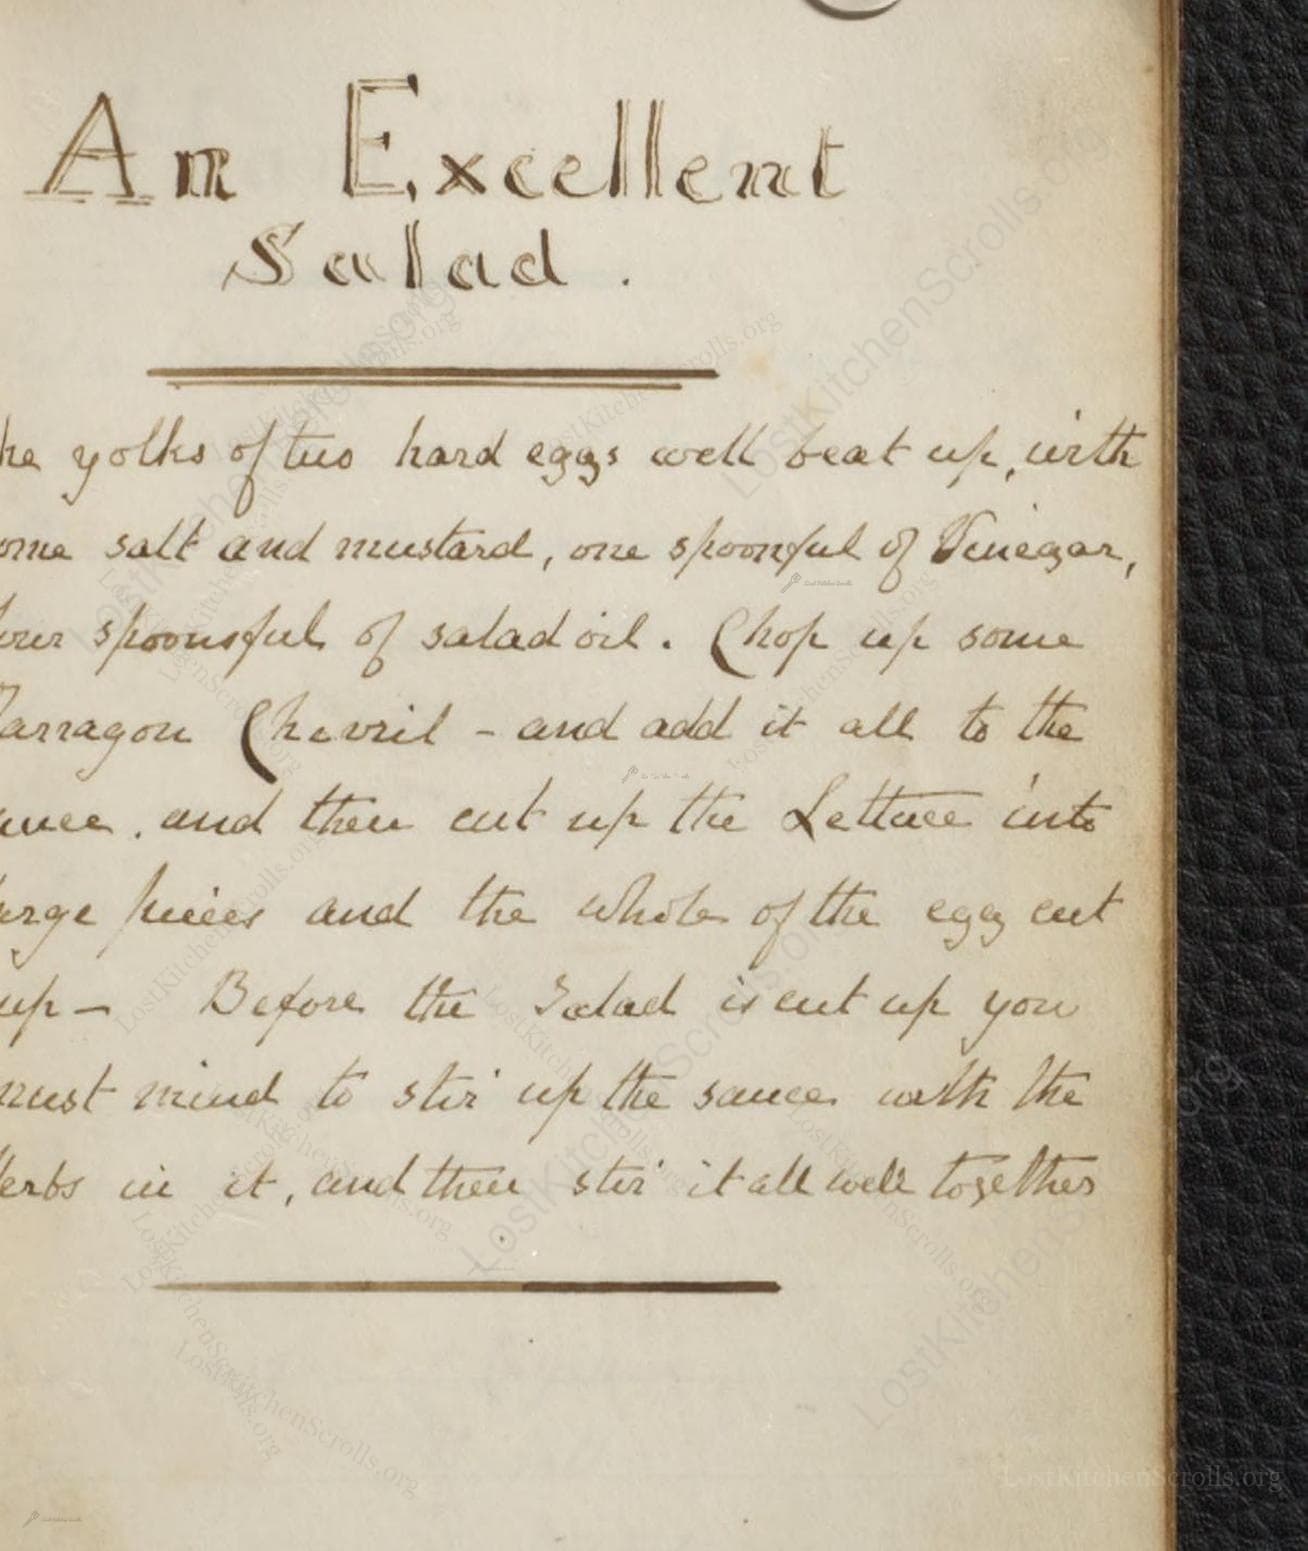 An Excellent
Salad .
he yolks of two hard eggs well beat up, with
ome salt and mustard, one spoonful of Vinegar,
our spoonsful of salad oil. Chop up some
Tarragon Chevril - and add it all to the
auce, and then cut up the Lettuce into
arge pieces and the whole of the egg cut
up - Before the Salad is cut up you
must mind to stir up the sauce with the
Herbs in it, and then stir it all well together
LostKitchenScrolls.org